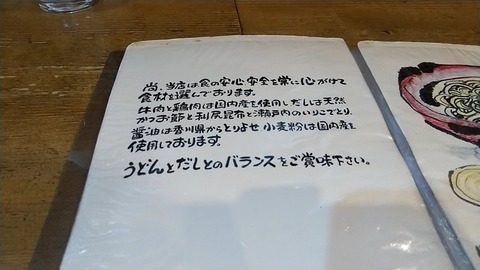 尚、当店は食の安心安全を常に心がけて
食材を選んでおります。
牛肉と鶏肉は国内産を使用しだしは天然
かつお節と利尻昆布と瀬戸内のいりこでとり、
醤油は香川県からとりよせ小麦粉は国内産を
使用しております。
うどんとだしとのバランスをご賞味下さい。